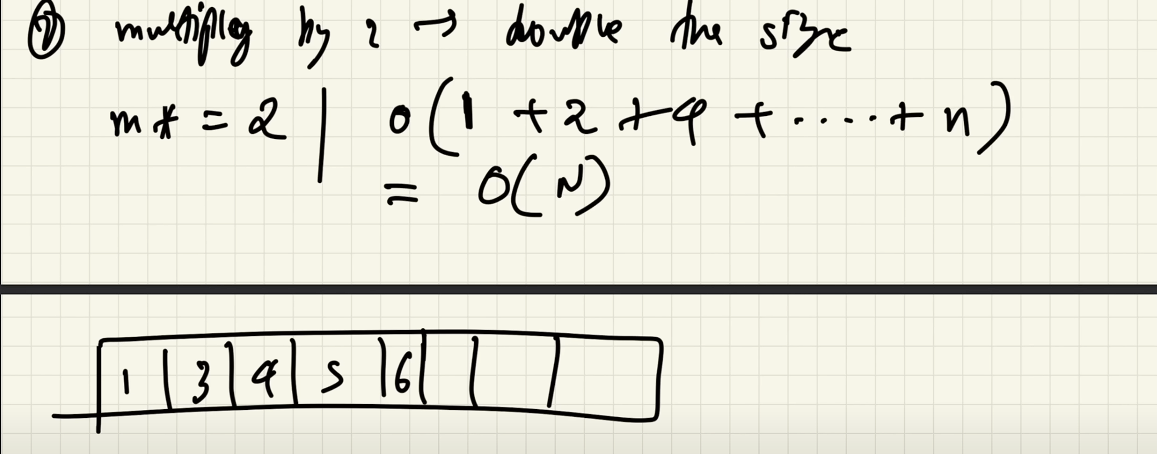 ② multiply by 2 → double the size
m* = 2 | O(1 + 2 + 4 + ..... + n)
= O(N)
1 | 3 | 4 | 5 | 6 | | |